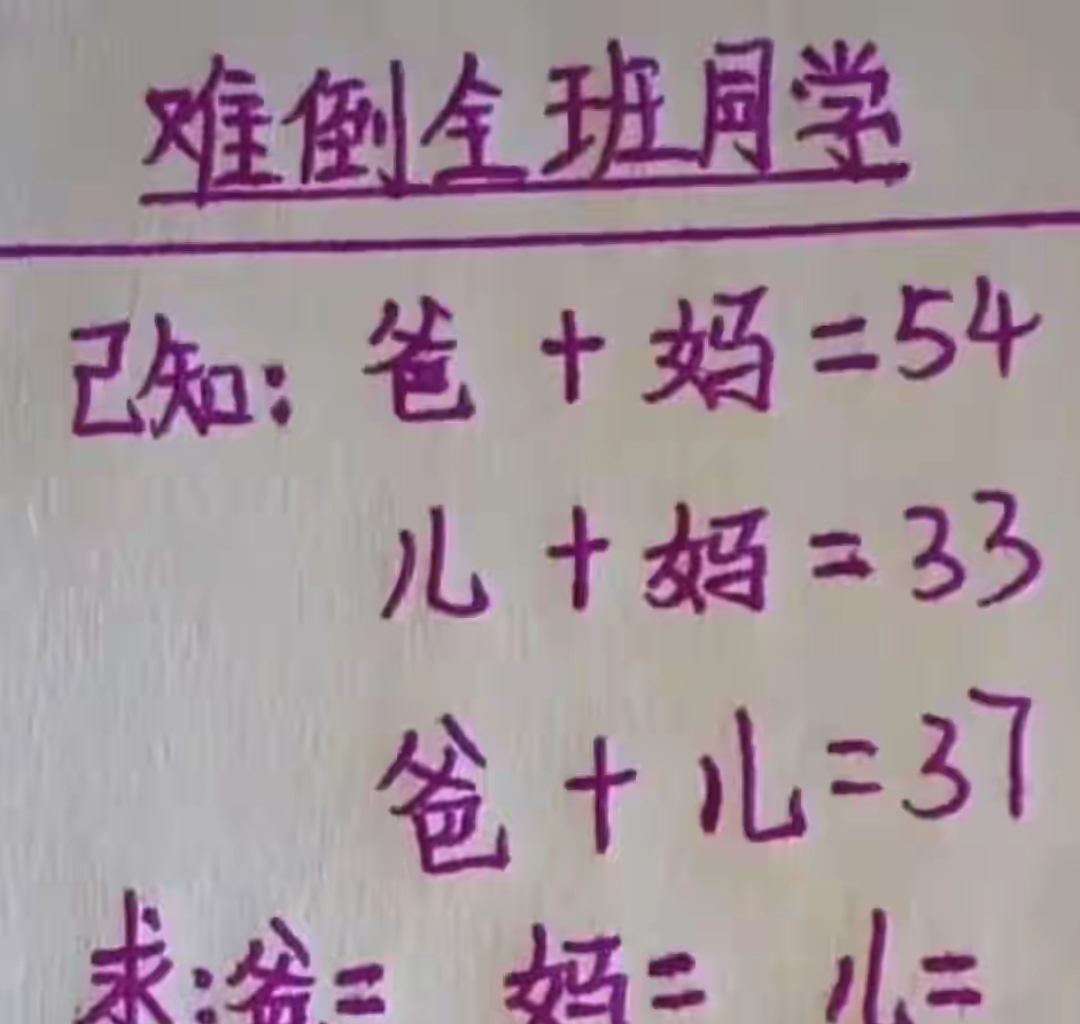 难倒全班同学
已知: 爸 + 妈 = 54
儿 + 妈 = 33
爸 + 儿 = 37
求: 爸 = 妈 = 儿 =